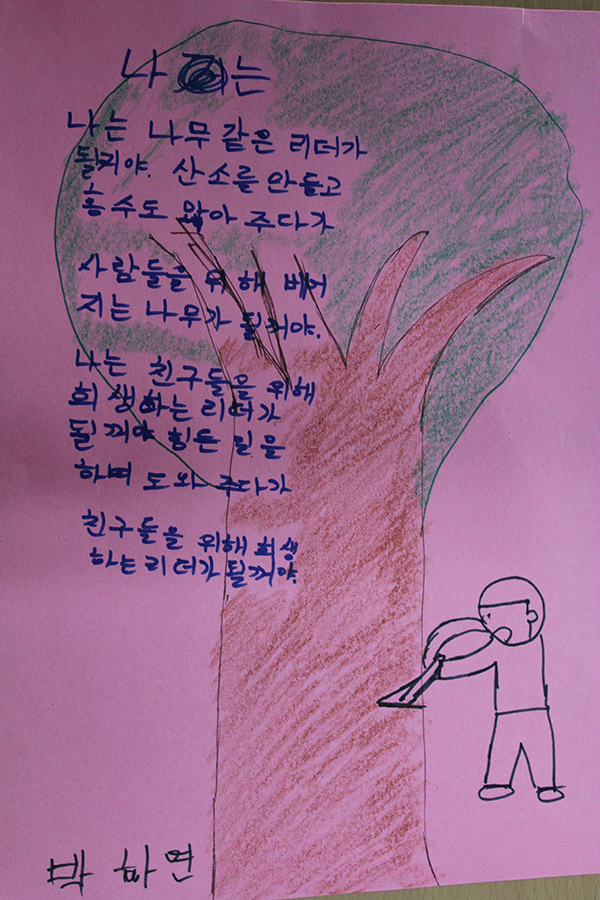 나 는
나는 나무 같은 리더가
될꺼야. 산소를 만들고
홍수도 막아 주다가
사람들을 위해 베어
지는 나무가 될꺼야.
나는 친구들을 위해
희생하는 리더가
될꺼야 힘든 일을
하며 도와 주다가
친구들을 위해 희생
하는 리더가 될꺼야.
박하연